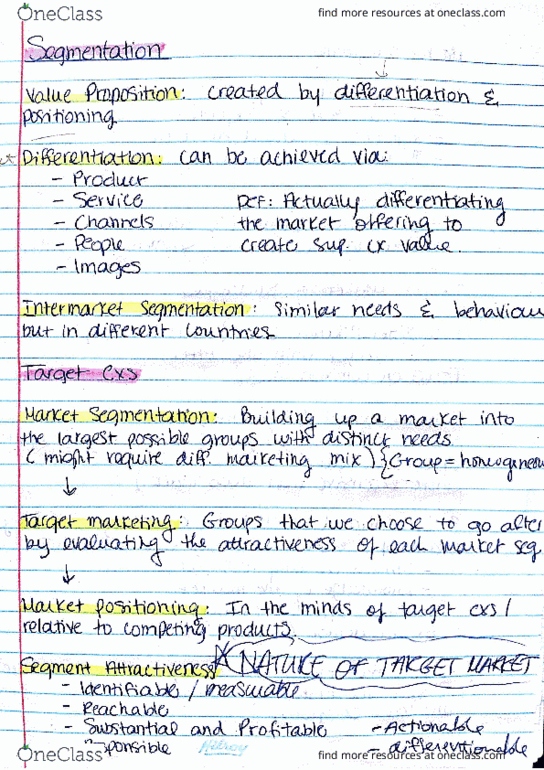 OneClass
find more resources at oneclass.com
Segmentation
Value Proposition: created by differentiation &
positioning
Differentiation: can be achieved via:
- Product
- Service
- Channels
- People
- Images
DEF: Actually differentiating
the market offering to
create sup. cx value.
Intermarket Segmentation: Similar needs & behaviou
but in different countries
Target cxs
Market Segmentation: Building up a market into
the largest possible groups with distinct needs
(might require diff. marketing mix) {Group = homogeneou
Target marketing: Groups that we choose to go after
by evaluating the attractiveness of each market seg
Market positioning: In the minds of target cxs /
relative to competing products.
Segment Attractiveness * NATURE OF TARGET MARKET
- Identifiable / measurable
- Reachable
- Substantial and Profitable
- Actionable
sponsible
- differentionable
OneClass
find more resources at oneclass.com